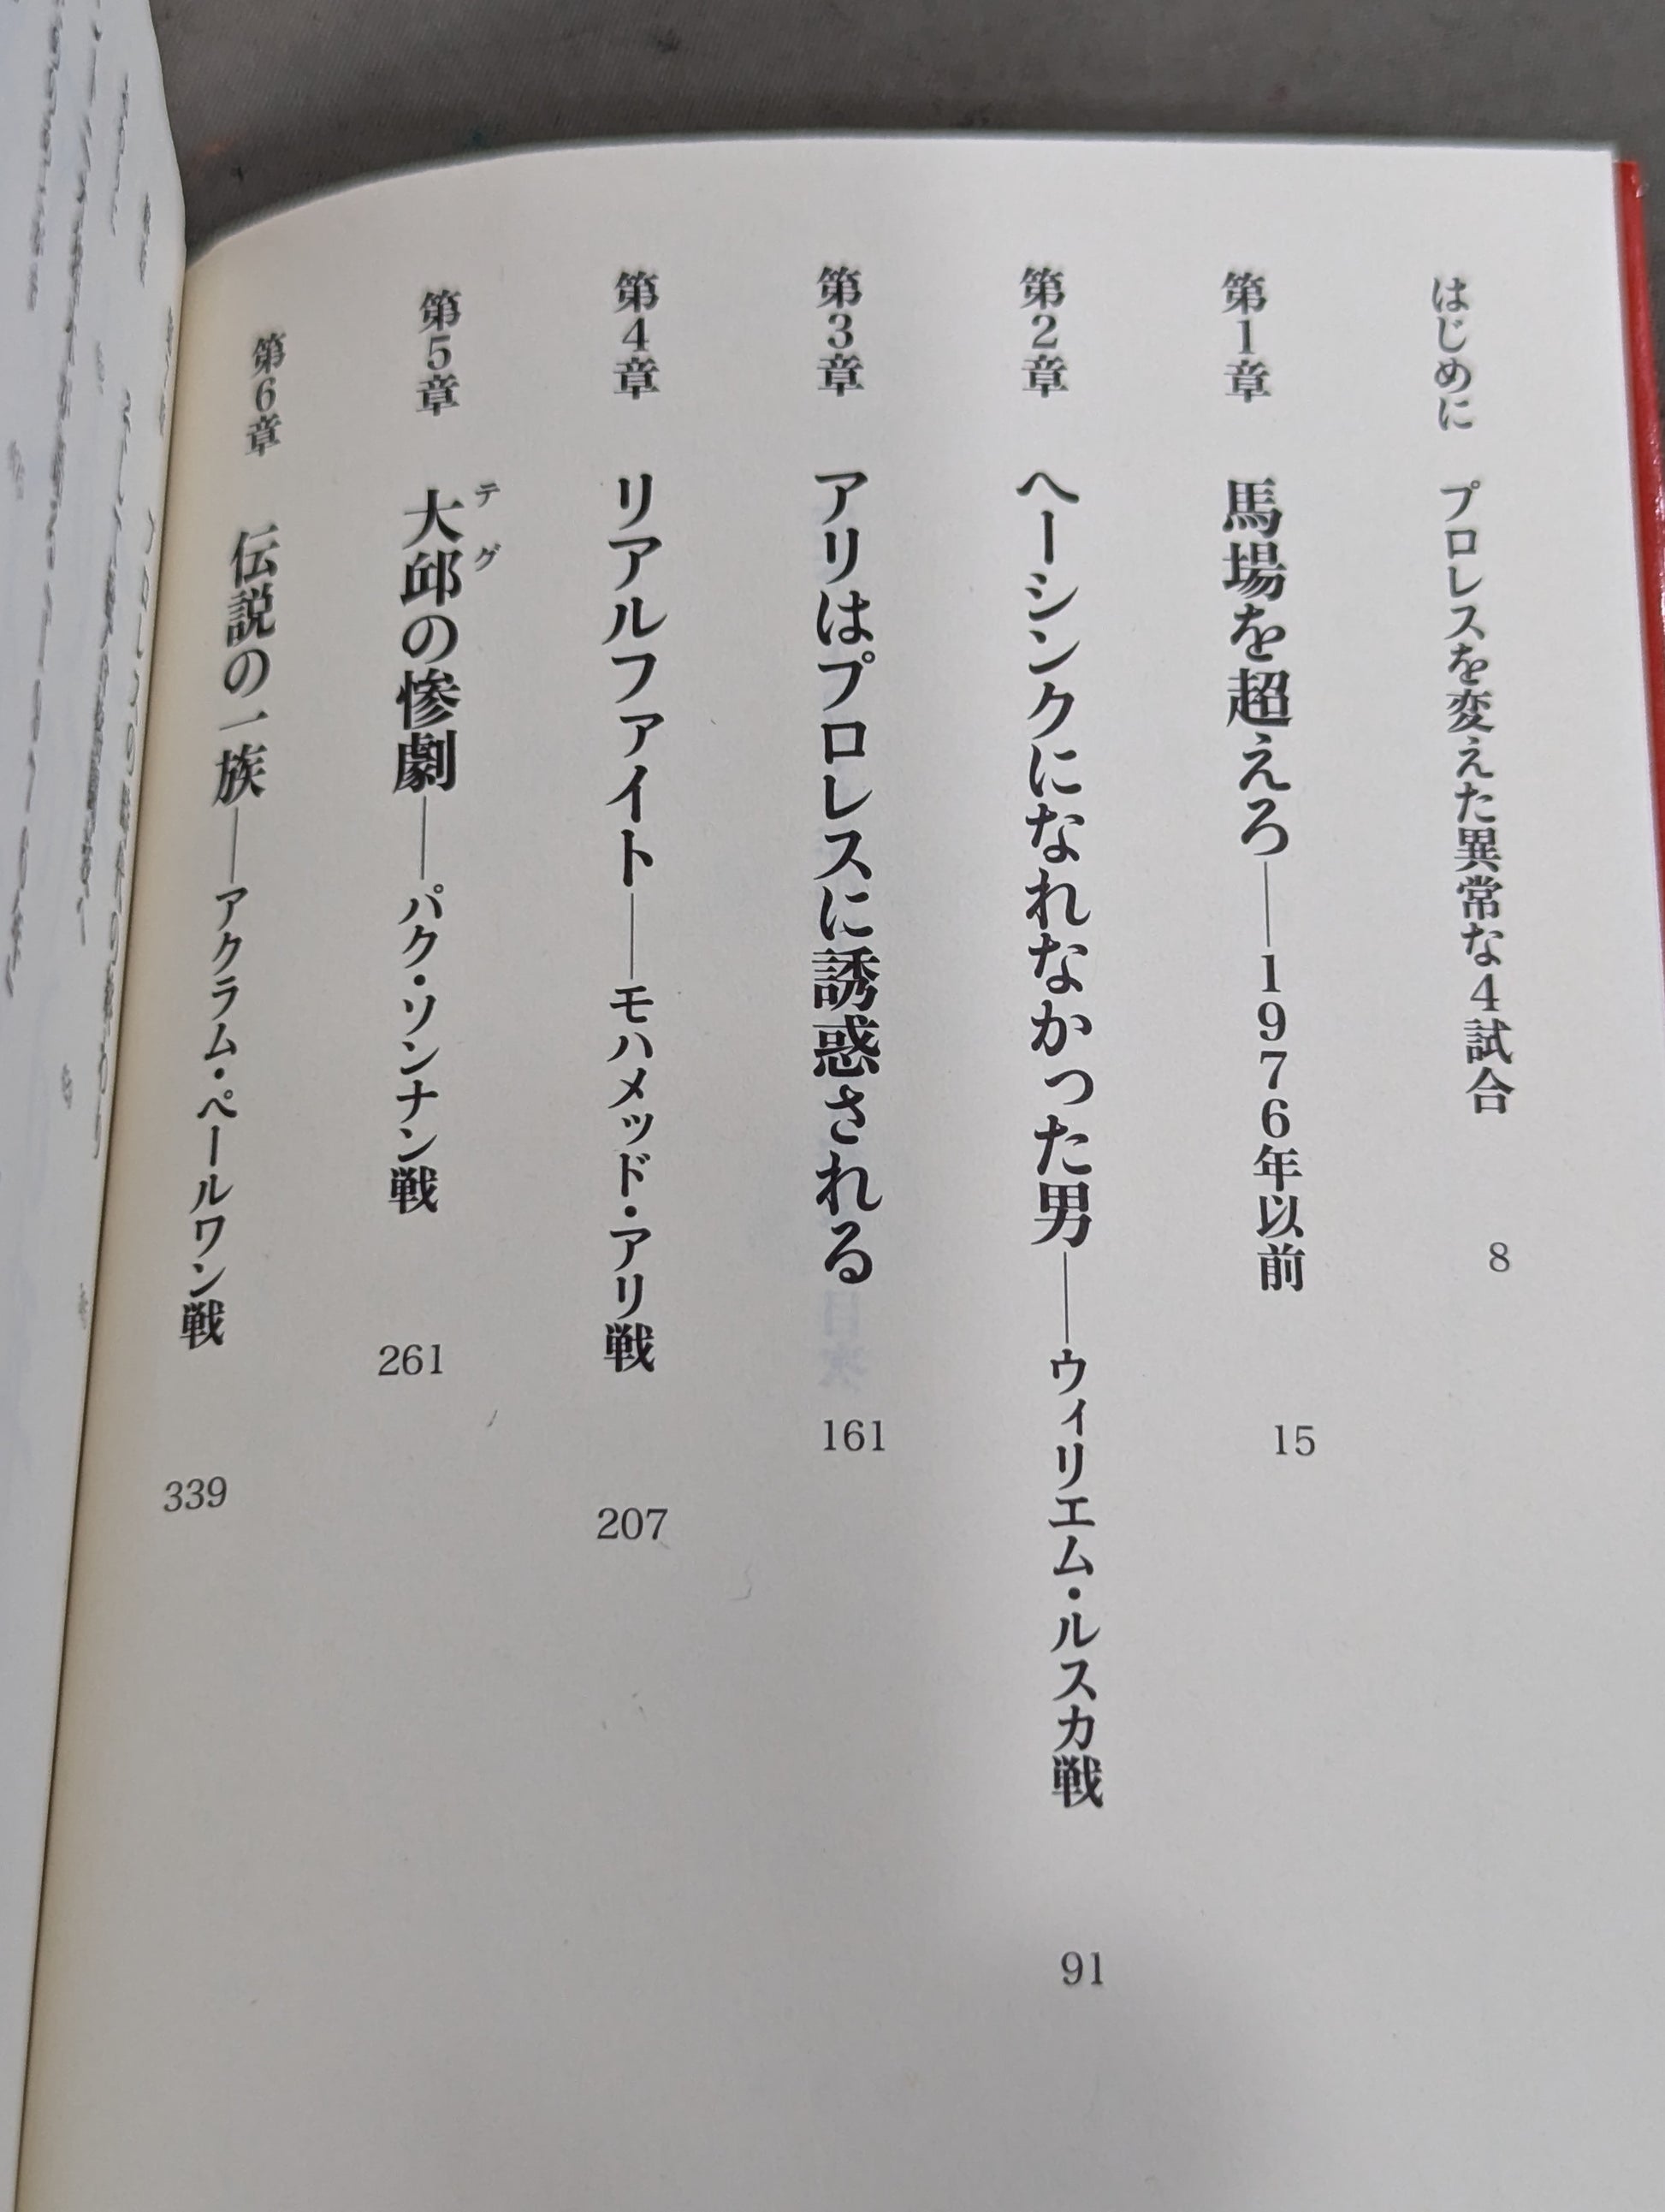 はじめに プロレスを変えた異常な4試合 8
第1章 馬場を超えろ──1976年以前 15
第2章 ヘーシンクになれなかった男──ウィリエム・ルスカ戦 91
第3章 アリはプロレスに誘惑される 161
第4章 リアルファイト──モハメッド・アリ戦 207
テグ
第5章 大邱の惨劇──パク・ソンナン戦 261
第6章 伝説の一族──アクラム・ペールワン戦 339